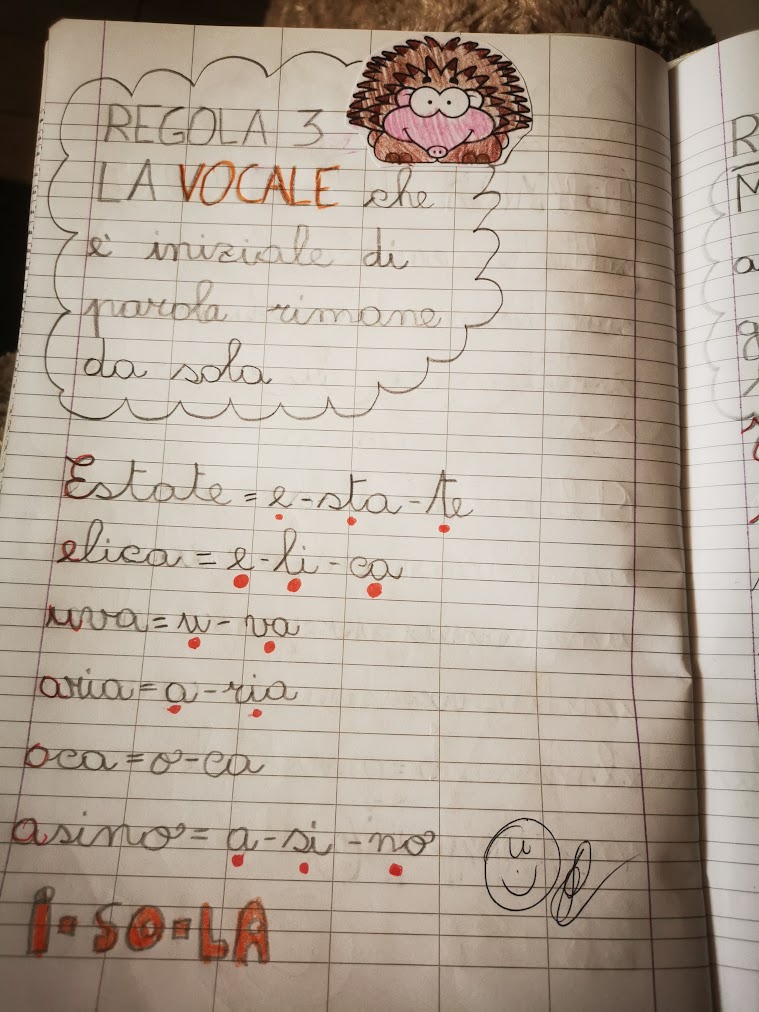 REGOLA 3
LA VOCALE che
è iniziale di
parola rimane
da sola
Estate = e-sta-te
elica = e-li-ca
uva = u-va
aria = a-ria
oca = o-ca
asino = a-si-no
I-SO-LA